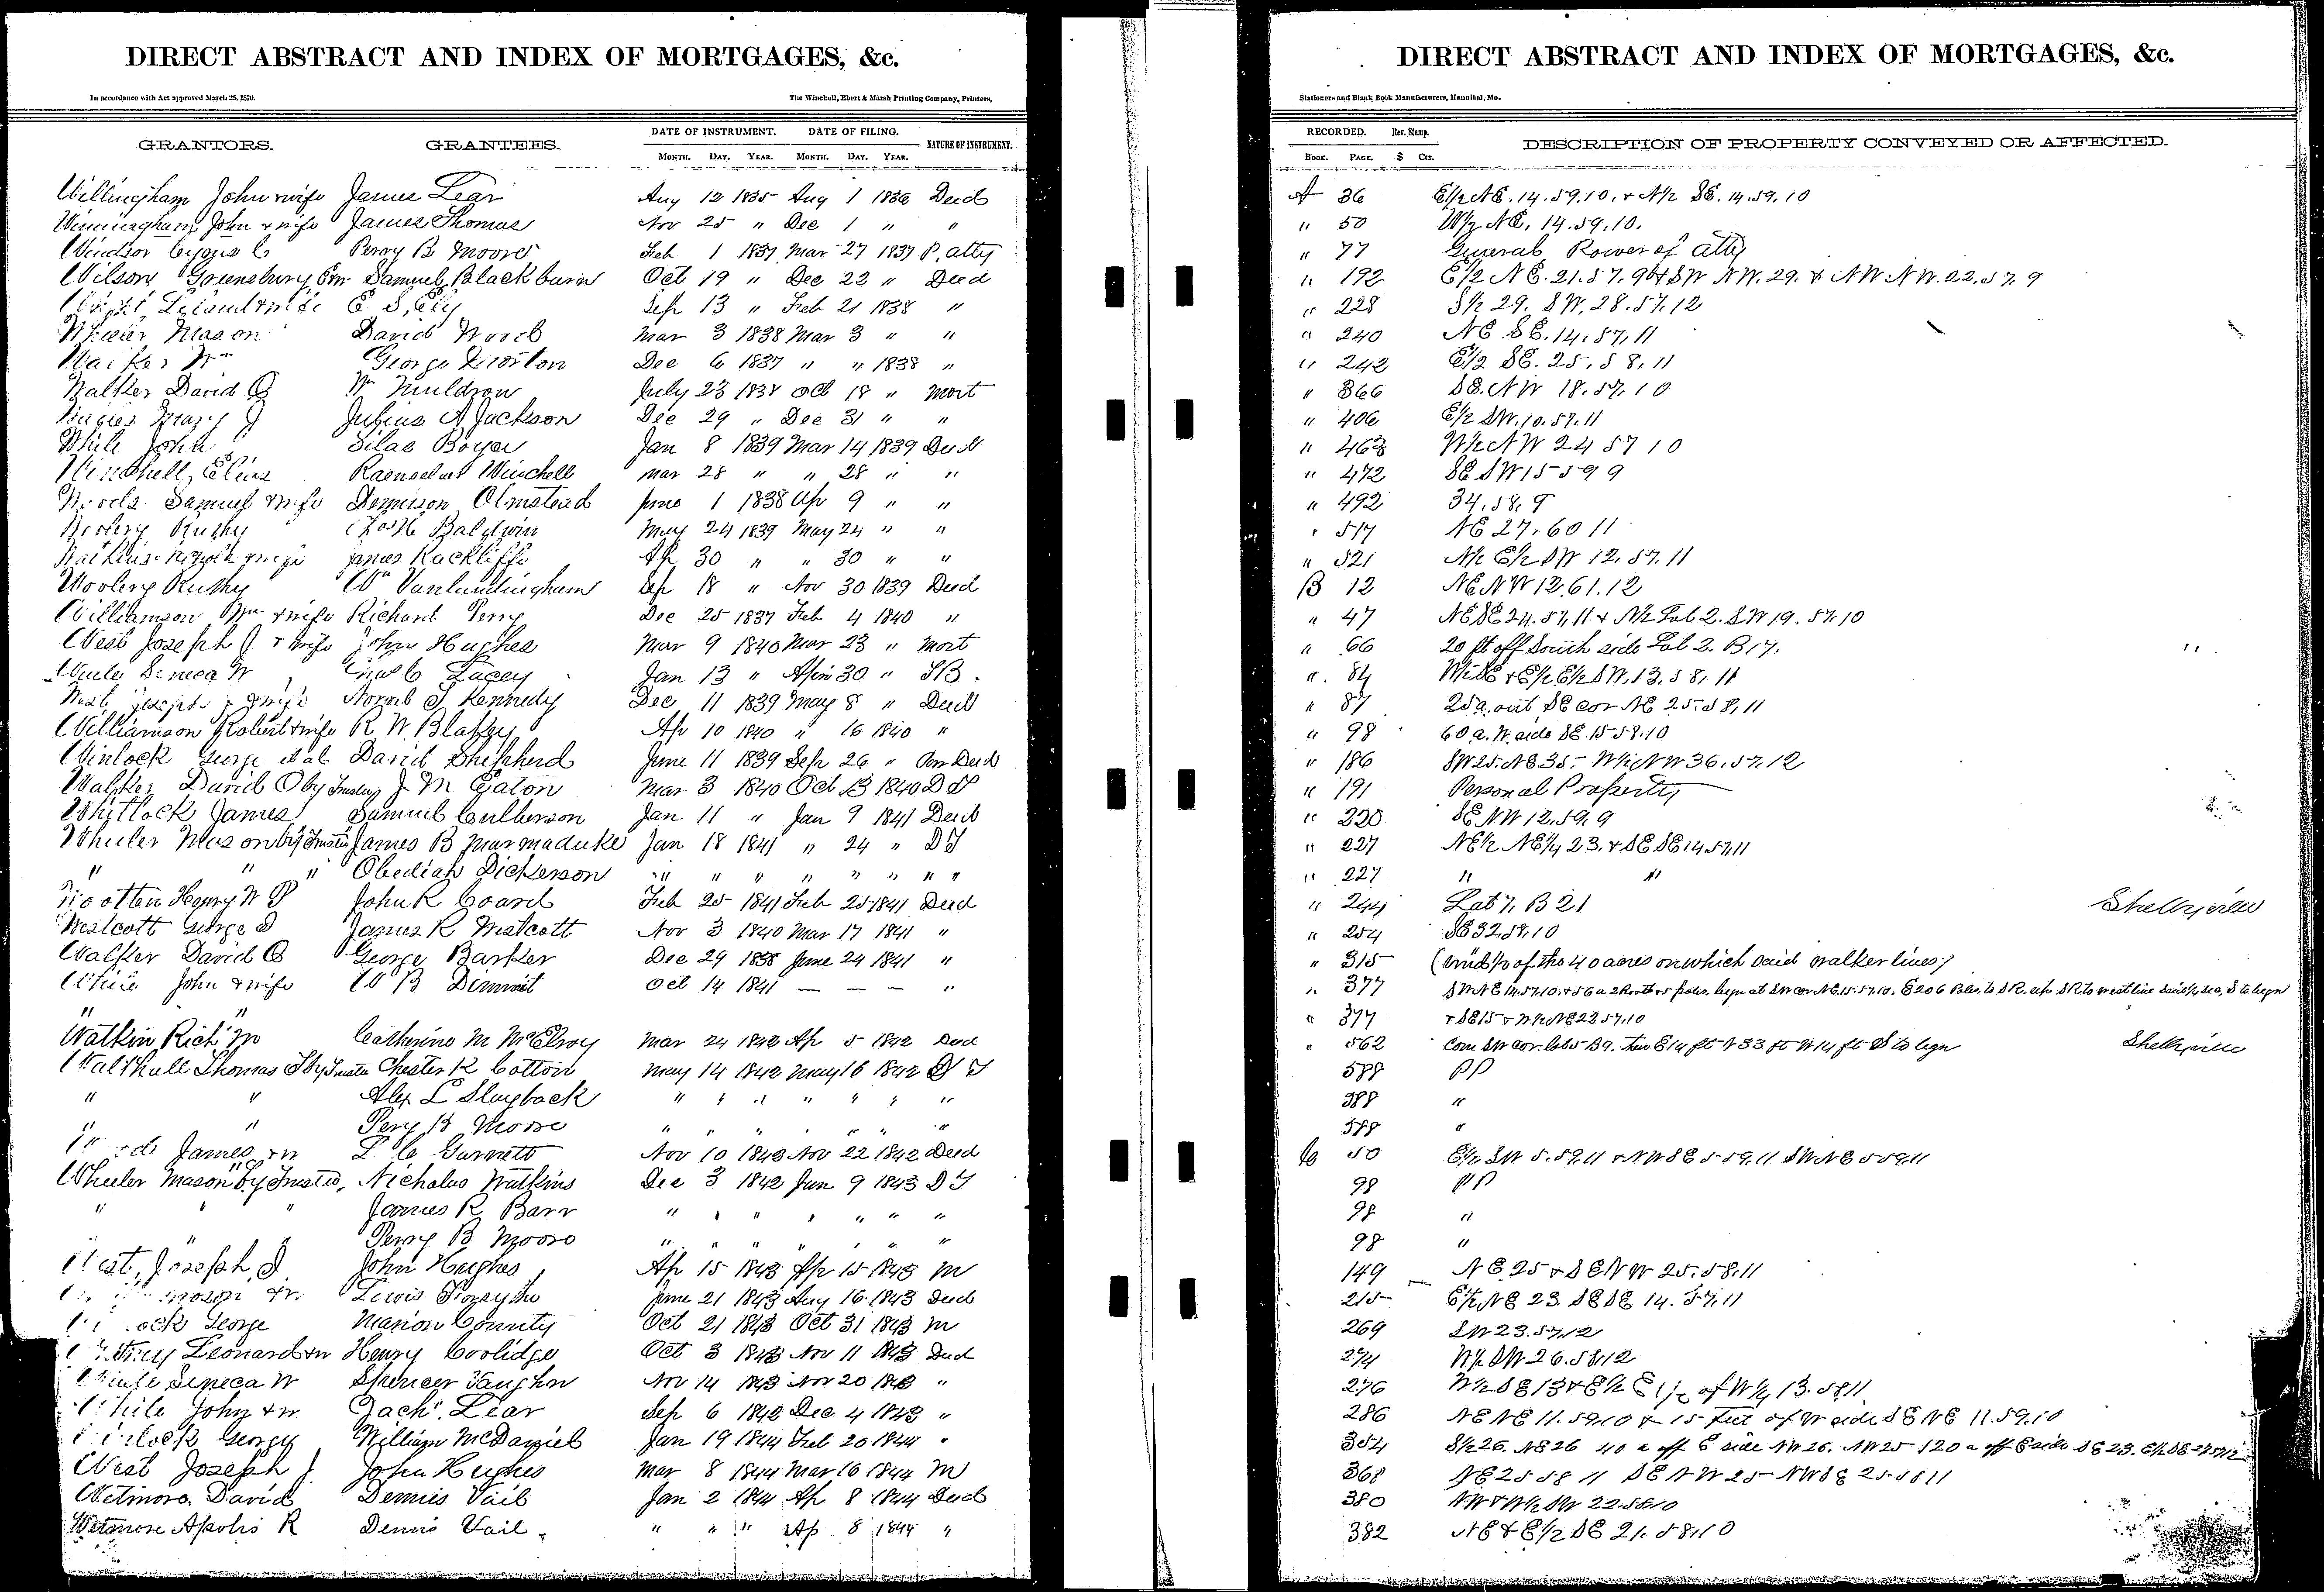 DIRECT ABSTRACT AND INDEX OF MORTGAGES, &c.
In accordance with Act approved March 25, 1870.
The Winchell, Ebert & Marsh Printing Company, Printers,
GRANTORS. GRANTEES. DATE OF INSTRUMENT. DATE OF FILING. NATURE OF INSTRUMENT.
MONTH. DAY. YEAR. MONTH. DAY. YEAR.
Willingham John & wife James Lear Aug 12 1835 Aug 1 1836 Deed
Winningham John & wife James Thomas Nov 25 " Dec 1 " "
Windsor Cyrus C Perry B Moore Feb 1 1837 Mar 27 1837 P. atty
Wilson Greensbury Samuel Blackburn Oct 19 " Dec 22 " Deed
Wright Leland & wife E. S. Ely Sep 13 " Feb 21 1838 "
Wheeler Mason David Wood Mar 3 1838 Mar 3 " "
Walker Wm George Dixon Dec 6 1837 " " 1838 "
Walker David O Wm Muldrow July 23 1838 Oct 18 " Mort
Mary J Julius A Jackson Dec 29 " Dec 31 " "
White John Silas Boyer Jan 8 1839 Mar 14 1839 Deed
Winchell Elias Winchell Mar 28 " " 28 " "
Woods Samuel & wife Dennison Olmstead June 1 1838 Ap 9 " "
Woolery Ruthy Baldwin May 24 1839 May 24 " "
Watkins & wife James Rackliffe Ap 30 " " 30 " "
Woolery Ruthy Wm Vanlandingham Sep 18 " Nov 30 1839 Deed
Williamson Wm & wife Richard Perry Dec 25 1837 Feb 4 1840 "
West Joseph J. & wife John Hughes Mar 9 1840 Mar 23 " Mort
White Seneca W Lacey Jan 13 " Apr 30 "
West Joseph J & wife T Kennedy Dec 11 1839 May 8 " Deed
Williamson Robert & wife R W Blakey Ap 10 1840 " 16 1840 "
Winlock George et al David Shepherd June 11 1839 Sep 26 " Deed
Walker David O by Trustees J M Eaton Mar 3 1840 Oct 13 1840 D T
Whitlock James Samuel Culberson Jan 11 " Jan 9 1841 Deed
Wheeler Mason by Trustee James B Marmaduke Jan 18 1841 " 24 " D T
" " " Obediah Dickerson " " " " " " "
Wootten Henry W P John R Coard Feb 25 1841 Feb 25 1841 Deed
Westcott George D James R Westcott Nov 3 1840 Mar 17 1841 "
Walker David O George Barker Dec 29 1838 June 24 1841 "
White John & wife W B Dimmit Oct 14 1841 — — — "
"
Watkin Rich M Catherine M McElroy Mar 24 1842 Ap 5 1842 Deed
Walthall Thomas by Trustee Chester K Cotton May 14 1842 May 16 1842 D T
" " Alex L Slayback " " " " " " "
" " Perry B Moore " " " " " " "
James & w L C Garnett Nov 10 1843 Nov 22 1842 Deed
Wheeler Mason by Trustee, Nicholas Watkins Dec 3 1842 Jan 9 1843 D T
" " " James R Barr " " " " " " "
" " " Perry B Moore " " " " " " "
West, Joseph J John Hughes Ap 15 1843 Ap 15 1843 M
Mason & w. Lewis Forsythe June 21 1843 Aug 16 1843 Deed
George Marion County Oct 21 1843 Oct 31 1843 M
Leonard & w Henry Coolidge Oct 3 1843 Nov 11 1843 Deed
White Seneca W Spencer Vaughn Nov 14 1843 Nov 20 1843 "
White John & w Zach. Lear Sep 6 1842 Dec 4 1843 "
Winlock George William McDaniel Jan 19 1844 Feb 20 1844 "
West Joseph J. John Hughes Mar 8 1844 Mar 16 1844 M
Wetmore David Dennis Vail Jan 2 1844 Ap 8 1844 Deed
Wetmore Apolis R Dennis Vail " " " Ap 8 1844 "
DIRECT ABSTRACT AND INDEX OF MORTGAGES, &c.
Stationers and Blank Book Manufacturers, Hannibal, Mo.
RECORDED. Rev. Stamp. DESCRIPTION OF PROPERTY CONVEYED OR AFFECTED.
BOOK. PAGE. $ Cts.
A 36 E1/2 NE. 14.59.10. & N1/2 SE. 14.59.10
" 50 W1/2 NE, 14.59.10.
" 77 General Power of Atty
" 192 E1/2 NE. 21.57.9 & SW NW. 29. & NW NW. 22.57.9
" 228 S1/2 29. SW. 28.57.12
" 240 NE SE. 14.57.11
" 242 E1/2 SE. 25.58.11
" 366 SE. NW 18.57.10
" 406 E1/2 SW. 10.57.11
" 463 W1/2 NW 24 57 10
" 472 SE SW 15 59 9
" 492 34.58.9
" 517 NE 27.60 11
" 521 N1/2 E1/2 SW 12.57.11
B 12 NE NW 12.61.12
" 47 NE SE 24.57.11 & N1/2 Lot 2. SW 19.57.10
" 66 20 ft off South side Lot 2. B 17.
" 84 W1/2 SE & E1/2 E1/2 SW. 13.58.11
" 87 25 a. out SE cor NE 25.58.11
" 98 60 a. W. side SE. 15-58.10
" 186 SW 25. NE 35- W1/2 NW 36.57.12
" 191 Personal Property
" 220 SE NW 12.59.9
" 227 NE1/2 NE1/4 23. & SE SE 14 57.11
" 227 " "
" 244 Lot 7. B 21 Shelbyville
" 254 SE 32.58.10
" 315 (Und 1/2 of the 40 acres on which said Walker lives)
" 377 SW NE 14.57.10. & 56 a 2 Roods 5 poles. begn at SW cor NE. 15.57.10. E 206 Poles. to S R. up S R to west line said 1/4 sec, S to begn
" 377 & SE 15 & W1/2 NE 22 57.10
" 562 Com SW cor. lot 5 B 9. then E 14 ft N 33 ft W 14 ft S to begn Shelbyville
588 PP
588 "
588 "
C 50 E1/2 SW 5.59.11 & NW SE 5-59.11 SW NE 5-59.11
98 PP
98 "
98 "
149 NE. 25 & SE NW 25.58.11
215 E1/2 NE 23. SE SE 14. 57.11
269 SW 23.57.12
274 W1/2 SW 26.58.12
276 W1/2 SE 13 & E1/2 E1/2 of W1/2 13.58.11
286 NE NE 11.59.10 & 15 feet of W side SE NE 11.59.10
354 S1/2 26. NE 26 40 a off E side NW 26. NW 25 120 a off E side SE 23.
368 NE 25 58 11 SE NW 25 NW SE 25-58 11
380 NW & W1/2 SW 22.58.10
382 NE & E1/2 SE 21.58.10